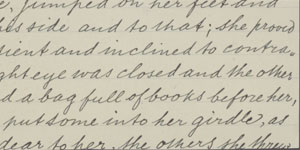 , jumped on her feet and
side and to that; she proved
ient and inclined to contra-
ght eye was closed and the other
d a bag full of books before her,
put some into her girdle, as
dear to her, the others she threw